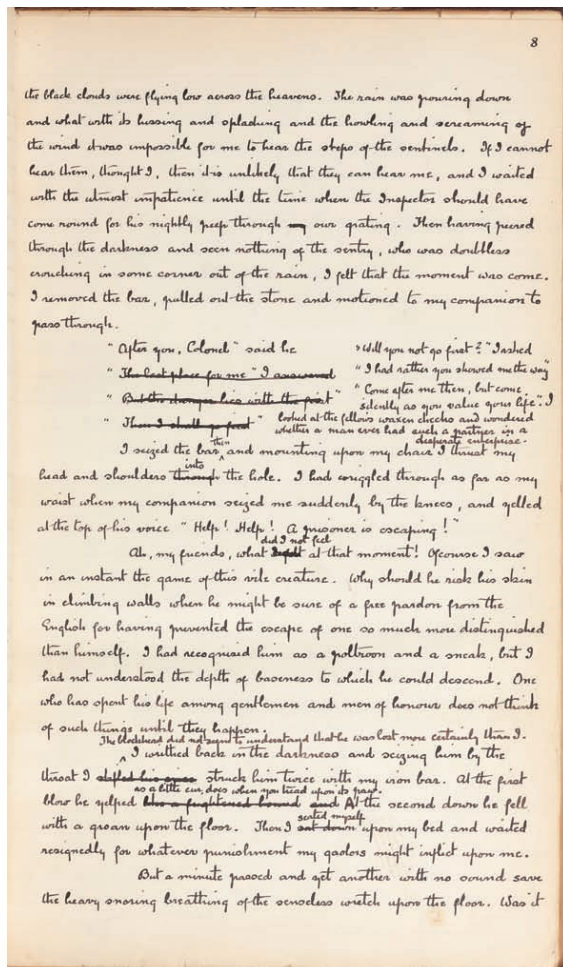 8
the black clouds were flying low across the heavens. The rain was pouring down
and what with its hissing and splashing and the howling and screaming of
the wind it was impossible for me to hear the steps of the sentinels. If I cannot
hear them, thought I, then it is unlikely that they can hear me, and I waited
with the utmost impatience until the time when the Inspector should have
come round for his nightly peep through my our grating. Then having peered
through the darkness and seen nothing of the sentry, who was doubtless
crouching in some corner out of the rain, I felt that the moment was come.
I removed the bar, pulled out the stone and motioned to my companion to
pass through.
"After you, Colonel" said he
"The best place for me" I answered
"But the danger lies with the first"
"Then I shall go first"
"Will you not go first?" I asked
"I had rather you showed me the way"
"Come after me then, but come
silently as you value your life". I
looked at the fellow's waxen cheeks and wondered
whether a man ever had such a partner in a
desperate enterprise.
then
I seized the bar, and mounting upon my chair I thrust my
into
head and shoulders through the hole. I had wriggled through as far as my
waist when my companion seized me suddenly by the knees, and yelled
at the top of his voice "Help! Help! A prisoner is escaping!"
did I not feel
Ah, my friends, what I felt at that moment! Of course I saw
in an instant the game of this vile creature. Why should he risk his skin
in climbing walls when he might be sure of a free pardon from the
English for having prevented the escape of one so much more distinguished
than himself. I had recognised him as a poltroon and a sneak, but I
had not understood the depth of baseness to which he could descend. One
who has spent his life among gentlemen and men of honour does not think
of such things until they happen.
The blockhead did not seem to understand that he was lost more certainly than I.
I writhed back in the darkness and seizing him by the
throat I struck him twice with my iron bar. At the first
as a little cur does when you tread upon its paw.
blow he yelped like a frightened hound and At the second down he fell
seated myself
with a groan upon the floor. Then I sat down upon my bed and waited
resignedly for whatever punishment my gaolers might inflict upon me.
But a minute passed and yet another with no sound save
the heavy snoring breathing of the senseless wretch upon the floor. Was it